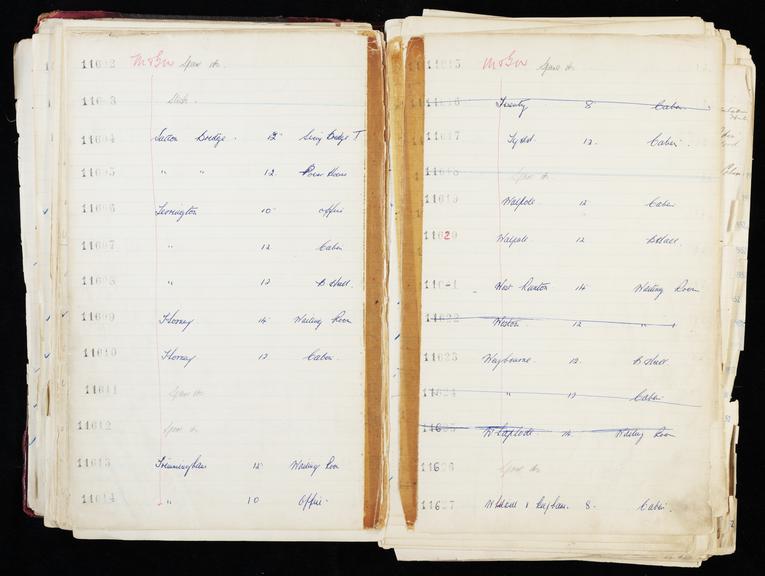 11602 M & GN Spare No.
11603
11604 Sutton Bridge 12" Swing Bridge T
11605 " " 12 Power House
11606 Terrington 10" Office
11607 " 12 Cabin
11608 " 12 B Hall.
11609 Thorney 14" Waiting Room
11610 Thorney 12 Cabin.
11611 Spare No
11612 Spare No
11613 12" Waiting Room
11614 " 10 Office
11615 M & GN Spare No.
11616 Twenty 8 Cabin
11617 Tydd 12. Cabin.
11618 Spare No
11619 Walpole 12 Cabin
11620 Walpole 12 B Hall.
11621 West Runton 14" Waiting Room
11622 Weston 12 " "
11623 Weybourne 12. B Hall
11624 " 12 Cabin
11625 Whaplode 14 Waiting Room
11626 Spare No
11627 8. Cabin.